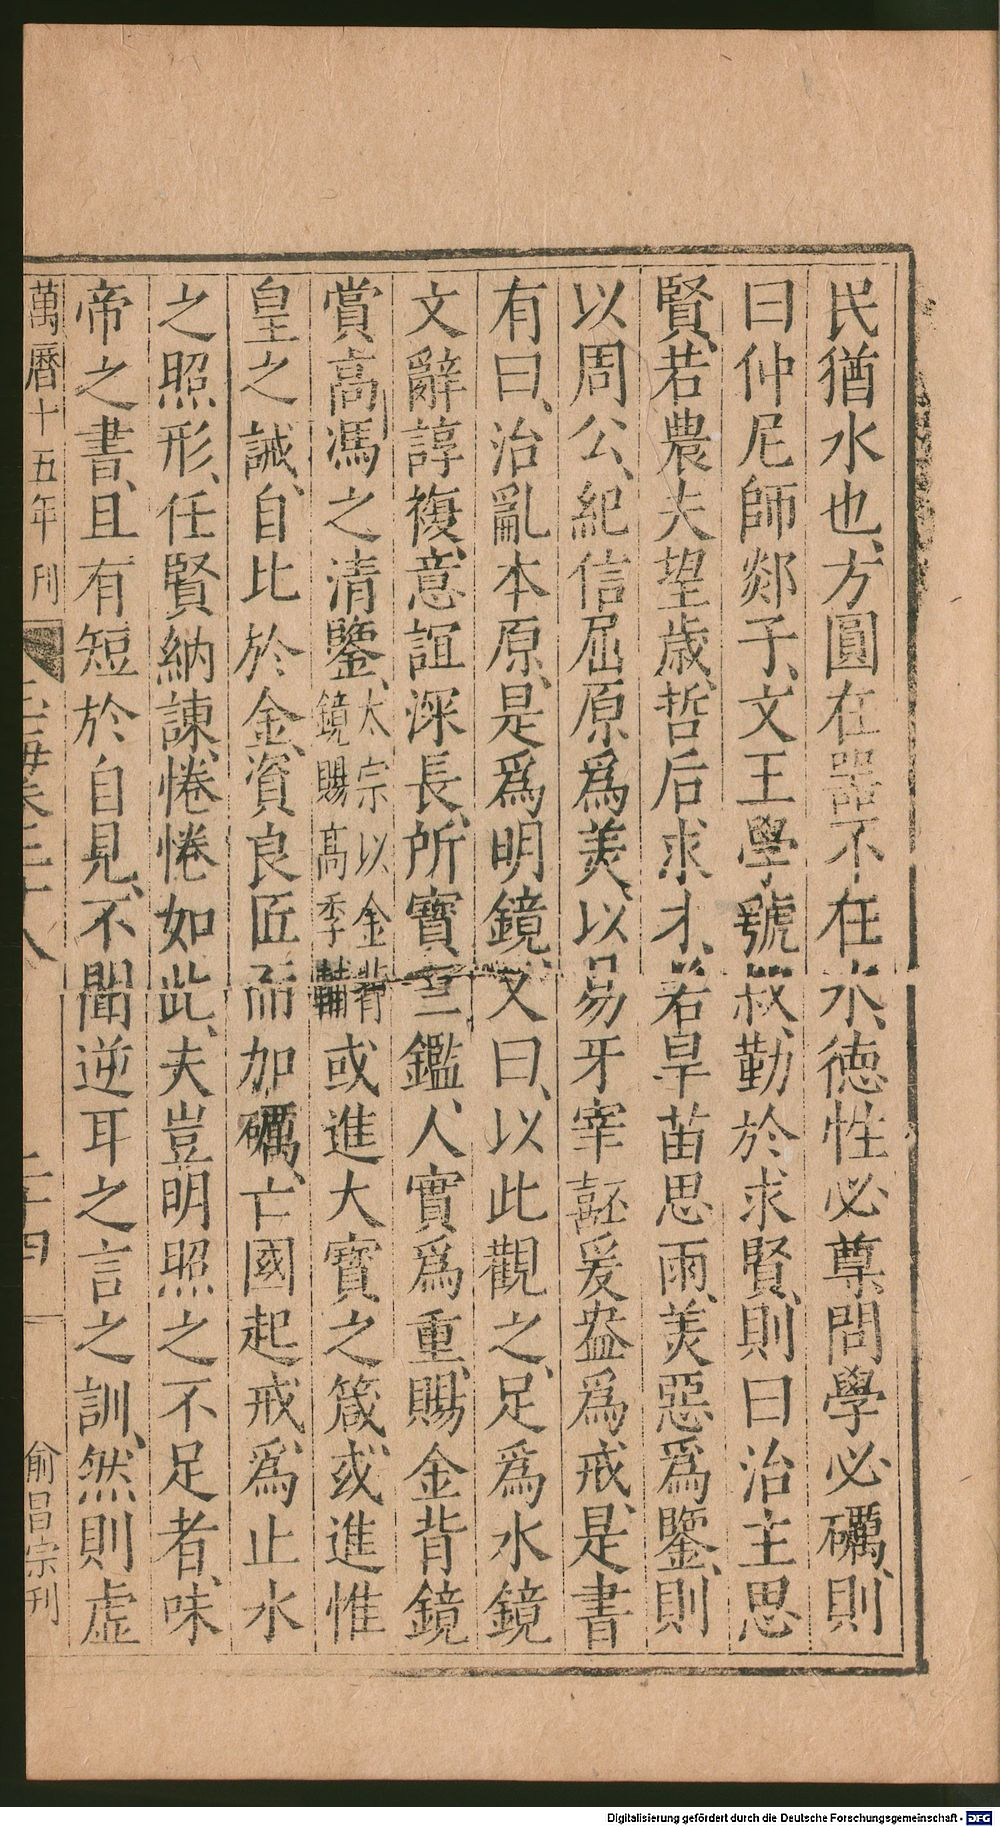 民猶水也、方圓在器不在水、德性必尊問學必礪、則
曰仲尼師郯子、文王學虢叔、勤於求賢、則曰治主思
賢、若農夫望歲、哲后求才、若旱苗思雨、美惡爲鑒、則
以周公、紀信屈原爲美、以易牙宰嚭爰盎爲戒、是書
有曰、治亂本原、是爲明鏡、又曰、以此觀之、足爲水鏡
文辭諄複、意誼深長、所寶三鑑、人實爲重、賜金背鏡
賞高馮之清鑒、太宗以金背鏡賜高季輔或進大寶之箴或進惟
皇之誡、自比於金、資良匠而加礪、亡國起戒、爲止水
之照形、任賢納諫、惓惓如此、夫豈明照之不足者、味
帝之書、且有短於自見、不聞逆耳之言之訓、然則虛
萬曆十五年刊 玉海卷三十八 二十四 俞昌宗刊
Digitalisierung gefördert durch die Deutsche Forschungsgemeinschaft - DFG